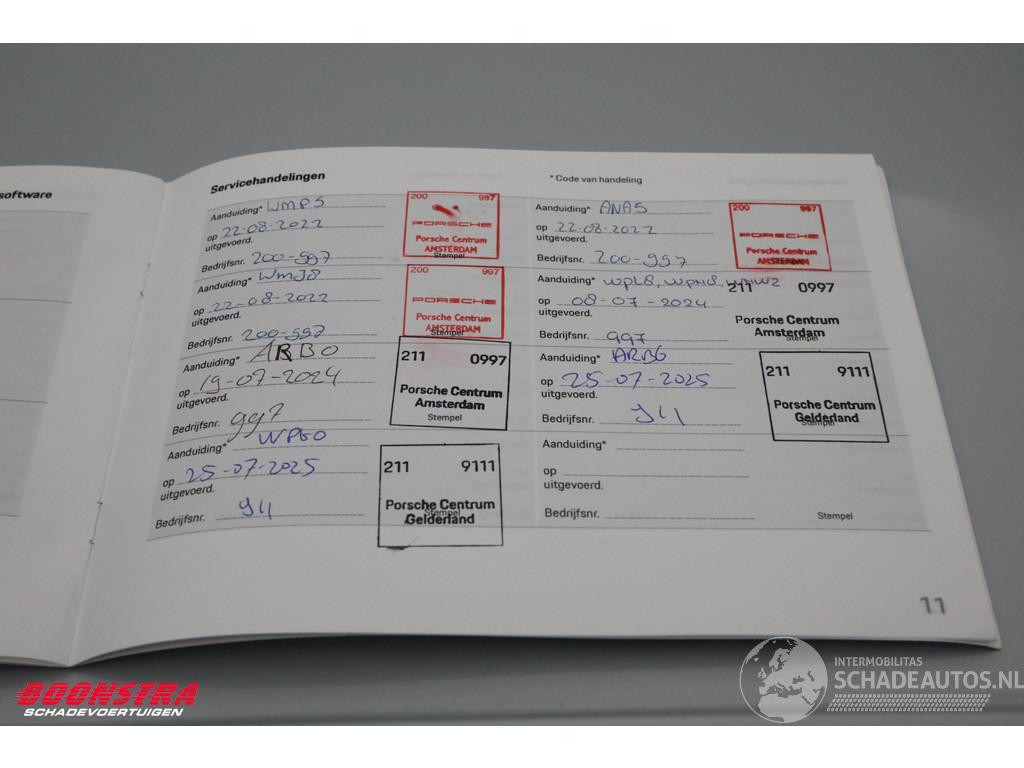 software
Servicehandelingen
* Code van handeling
Aanduiding* WMP5
op 22-08-2022
uitgevoerd.
Bedrijfsnr. 200-997
200 997
PORSCHE
Porsche Centrum
AMSTERDAM
Stempel
Aanduiding* ANA5
op 22-08-2022
uitgevoerd.
Bedrijfsnr. 200-997
200 997
PORSCHE
Porsche Centrum
AMSTERDAM
Aanduiding* WMJ8
op 22-08-2022
uitgevoerd.
Bedrijfsnr. 200-997
200 997
PORSCHE
Porsche Centrum
AMSTERDAM
Stempel
Aanduiding* WPL8,
op 08-07-2024
uitgevoerd.
Bedrijfsnr. 997
211 0997
Porsche Centrum
Amsterdam
Stempel
Aanduiding* ARB0
op 19-07-2024
uitgevoerd.
Bedrijfsnr. 997
211 0997
Porsche Centrum
Amsterdam
Stempel
Aanduiding* ARB6
op 25-07-2025
uitgevoerd.
Bedrijfsnr. 911
211 9111
Porsche Centrum
Gelderland
Stempel
Aanduiding* WPG0
op 25-07-2025
uitgevoerd.
Bedrijfsnr. 911
211 9111
Porsche Centrum
Gelderland
Stempel
Aanduiding*
op
uitgevoerd.
Bedrijfsnr.
Stempel
11
BOONSTRA
SCHADEVOERTUIGEN
INTERMOBILITAS
SCHADEAUTOS.NL